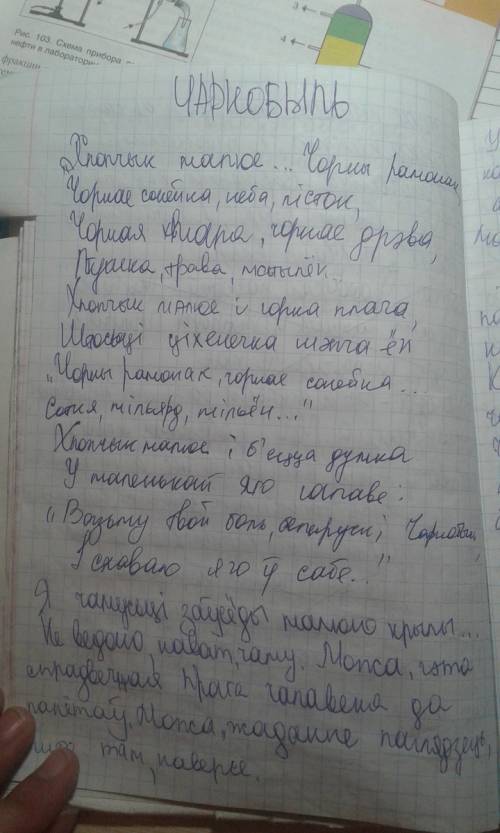 Рис. 103. Схема прибора
нефти в лаборатории
фракции
3
4
ЧАРНОБЫЛЬ
Хлопчык малюе... Чорны рамонак
Чорнае сонейка, неба, лісток,
Чорная хмара, чорнае дрэва,
Птушка, трава, матылёк...
Хлопчык малюе і горка плача,
Штосьці ціхенечка шэпча ён
"Чорны рамонак, чорнае сонейка...
Сотня, мільярд, мільён..."
Хлопчык малюе і б'ецца думка
У маленькай яго галаве:
"Вазьму твой боль, Беларусь, і Чарнобыль,
І схаваю яго ў сабе.."
Я чамусьці заўсёды малюю крылы...
Не ведаю, нават, чаму. Можа, гэта
спрадвечная прага чалавека да
палётаў. Можа, жаданне паглядзець,
там, наверсе.